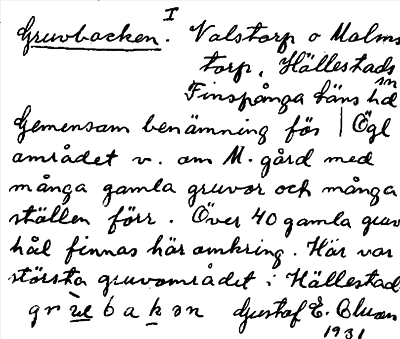 I
Gruvbacken. Valstorp o Malms
torp, Hällestads
sn
Finspånga läns hd
Gemensam benämning för | Ögl
området v. om M. gård med
många gamla gruvor och många
ställen förr. Över 40 gamla gruv
hål finnas här omkring. Här var
största gruvområdet i Hällestad
Gustaf E. Bluom
1931